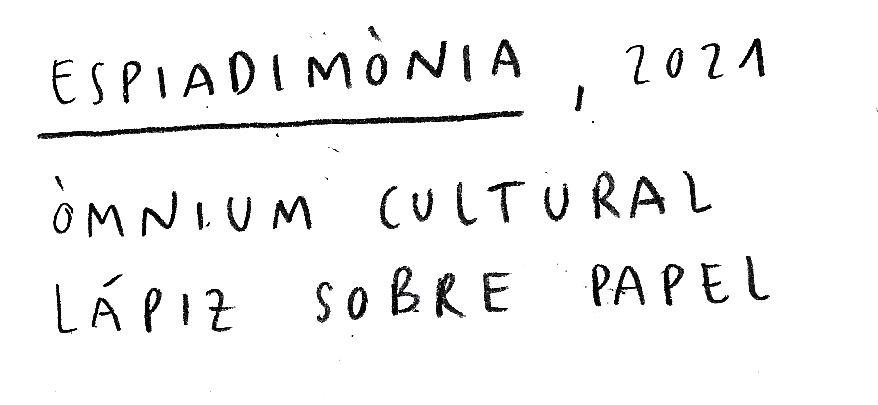 ESPIADIMÒNIA, 2021
ÒMNIUM CULTURAL
LÁPIZ SOBRE PAPEL